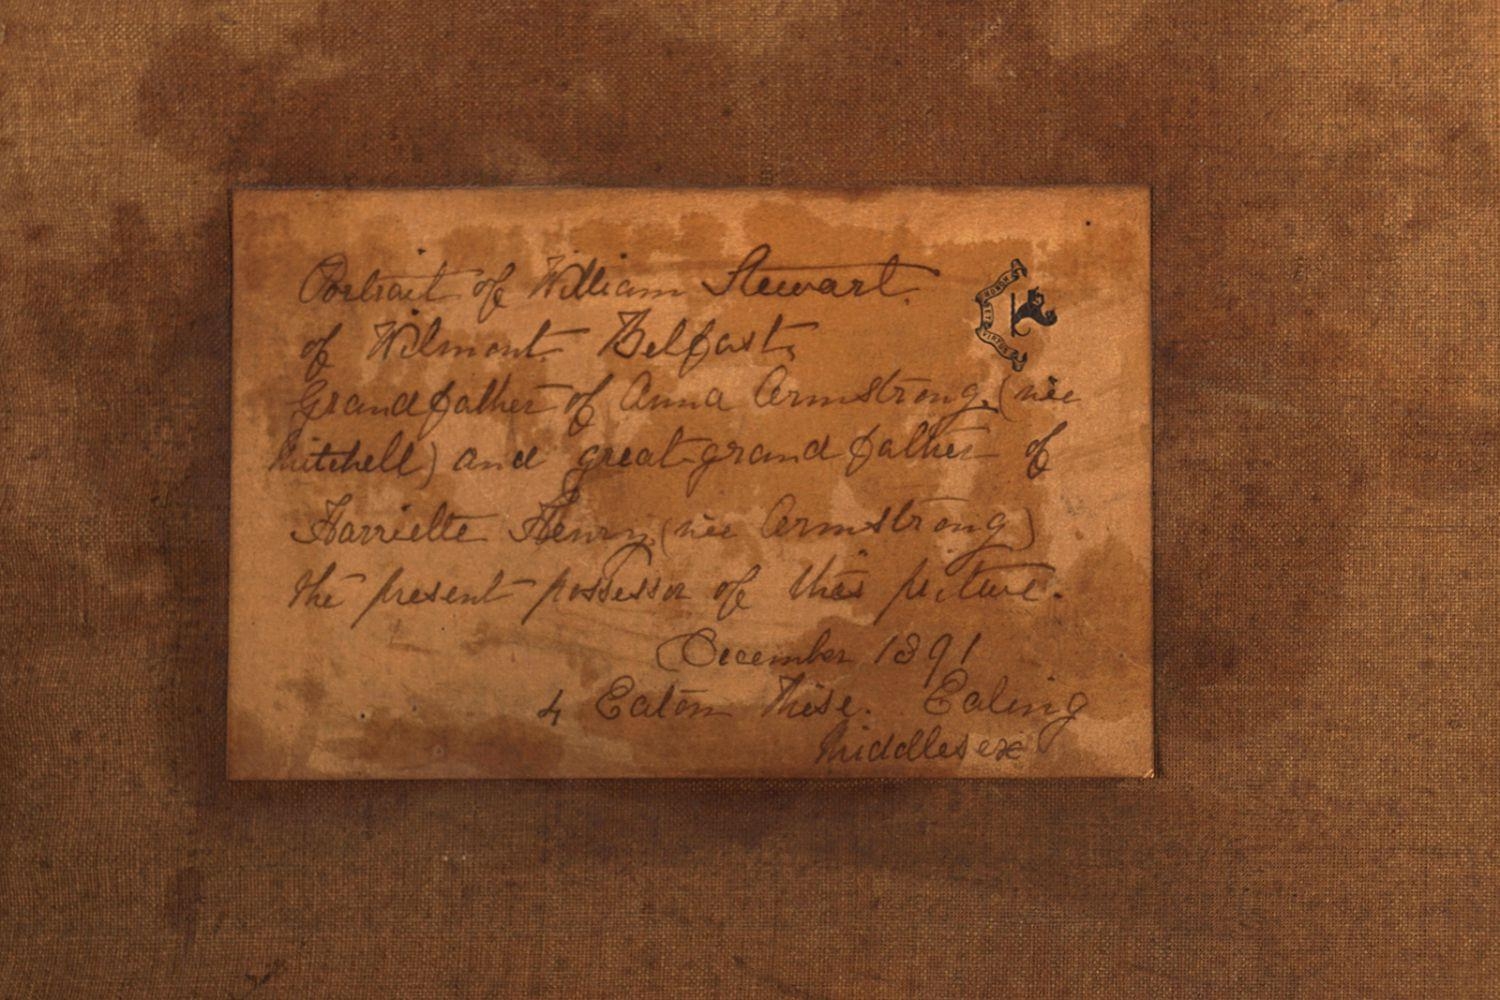 Portrait of William Stewart.
of Wilmont Belfast,
Grandfather of Anna Armstrong (née
Mitchell) and great-grandfather of
Harriette Henry (née Armstrong)
the present possessor of this picture.
December 1891
4 Eaton Rise. Ealing
Middlesex